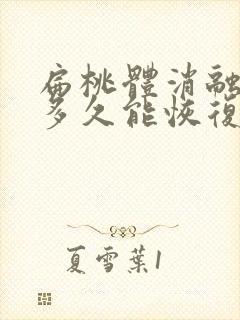 扁桃體消融
多久能恢復
夏雪葉1